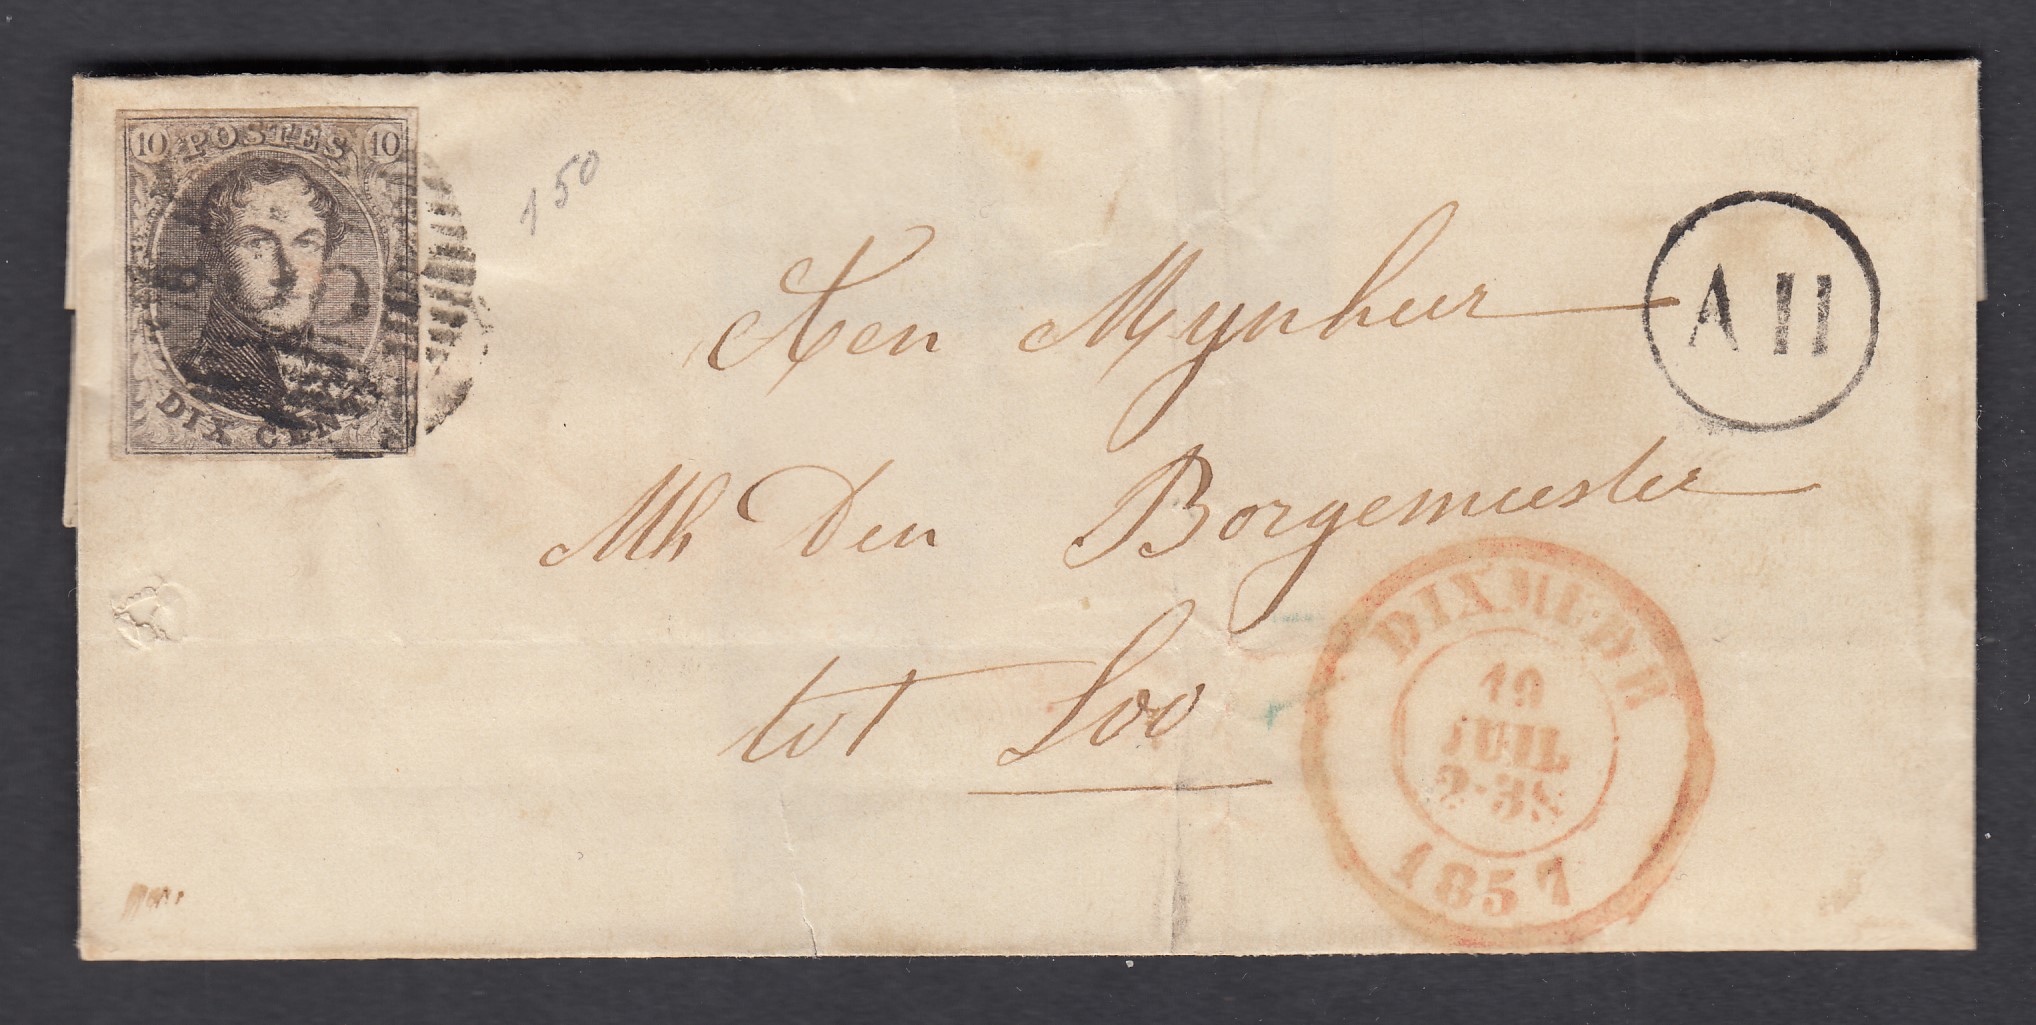 10 POSTES 10
DIX CENT
150
Aen Mynheer
Mh Den Borgemeester
tot Loo
A 11
DIXMUDE
19
JUIL
2-3S
1857